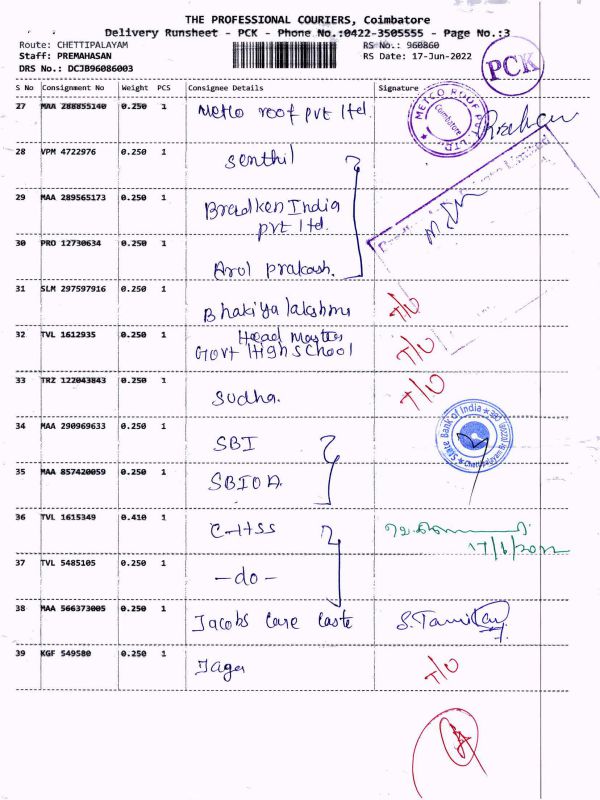 THE PROFESSIONAL COURIERS, Coimbatore
Delivery Runsheet - PCK - Phone No.:0422-3505555 - Page No.:3
Route: CHETTIPALAYAM
RS No.: 960860
Staff: PREMAHASAN
RS Date: 17-Jun-2022
DRS No.: DCJB96086003
PCK
S No Consignment No Weight PCS Consignee Details Signature
27 MAA 288855140 0.250 1 Metco roof pvt ltd.
METCO ROOF PVT. LTD.
Coimbatore
28 VPM 4722976 0.250 1 Senthil
29 MAA 289565173 0.250 1 Bradken India
pvt ltd.
30 PRO 12730634 0.250 1 Arul prakash.
31 SLM 297597916 0.250 1 Bhakiya lakshmi T/O
32 TVL 1612935 0.250 1 Head Master
Govt High School T/O
33 TRZ 122043843 0.250 1 Sudha. T/O
34 MAA 290969633 0.250 1 SBI
State Bank of India
35 MAA 857420059 0.250 1 SBIOA.
36 TVL 1615349 0.410 1 CHSS
17/6/2022
37 TVL 5485105 0.250 1 -do-
38 MAA 566373005 0.250 1 Jacobs care
39 KGF 549580 0.250 1 Jaga T/O